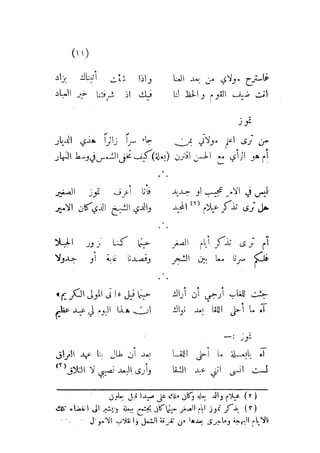 (١١)
فاسترح مولاي من بعد العنا واذا شئت أتيناك بزاد
أنت ضيف القوم والحظ لنا فيك اذ شرفتنا خير العباد
تموز
من ترى اعلم مولاتي بمن جاء سراً زائراً هذي الديار
أم هو الرأي مع الحسن اقترن (بعلة) كيف تخفى الشمس في وسط النهار
ليس في الامر عجيب او جديد فأنا أعرف تموز الصغير
هل ترى تذكر عيلام (٢) المجيد والدي الشيخ الذي كان الامير
أم ترى تذكر أيام الصغر حينما كنا نزور الجبلا
فلكم سرنا معا بين الشجر وقصدنا غابة أو جدولا
جئت للغاب أرجي أن أراك حينما قيل «اتى المولى الكريم»
آه ما أحلى اللقا بعد نواك ان هذا اليوم لي عيد عظيم
تموز :—
آه يابعلة ما أحلى اللقا بعد أن طال بنا عهد الفراق
لست انسى انني عبد الشقا وأرى البعد نصيبي لا التلاق (٣)
(٢) عيلام والد بعلة وكان ملك على صيدا قبل بعلون
(٣) يذكر تموز ايام الصغر حينما كان يجتمع ببعلة ويشير الى انقضاء تلك
الايام البهجة وماجرى بعدها من تفرقة الشمل وانقلاب الاحوال